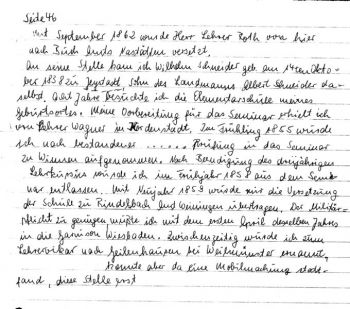 Seite 46
Mit September 1862 wurde Herr Lehrer Roth von hier
nach Buch Amts Nastätten versetzt.
An seine Stelle kam ich Wilhelm Schneider geb. am 14ten Okto-
ber 1838 zu Sohn des Landmanns Albert Schneider da-
selbst. Acht Jahre besuchte ich die Elementarschule meines
Geburtsortes. Meine Vorbereitung für das Seminar erhielt ich
von Lehrer Wagner in Nordenstadt. Im Frühling 1855 wurde
ich nach bestandener ....... Prüfung in das Seminar
zu Usingen aufgenommen. Nach Beendigung des dreijährigen
Lehrkursus wurde ich im Frühjahr 1858 aus dem Semi-
nar entlassen. Mit Neujahr 1859 wurde mir die Versetzung
der Schule zu übertragen. Der Militär-
pflicht zu genügen mußte ich mit dem ersten April desselben Jahres
in die Garnison Wiesbaden. Zwischenzeitig wurde ich zum
Lehrervikar nach Seilenhausen bei Weilmünster ernannt,
konnte aber da eine Mobilmachung statt-
fand, diese Stelle erst